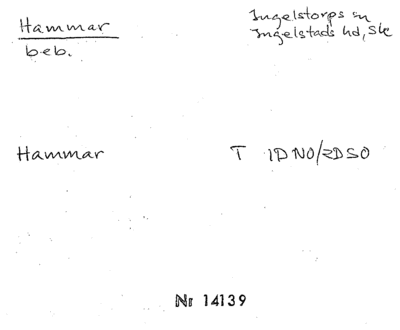 Hammar
beb.
Ingelstorps sn
Ingelstads hd, Sk
Hammar T 1D NO/2D SO
Nr 14139